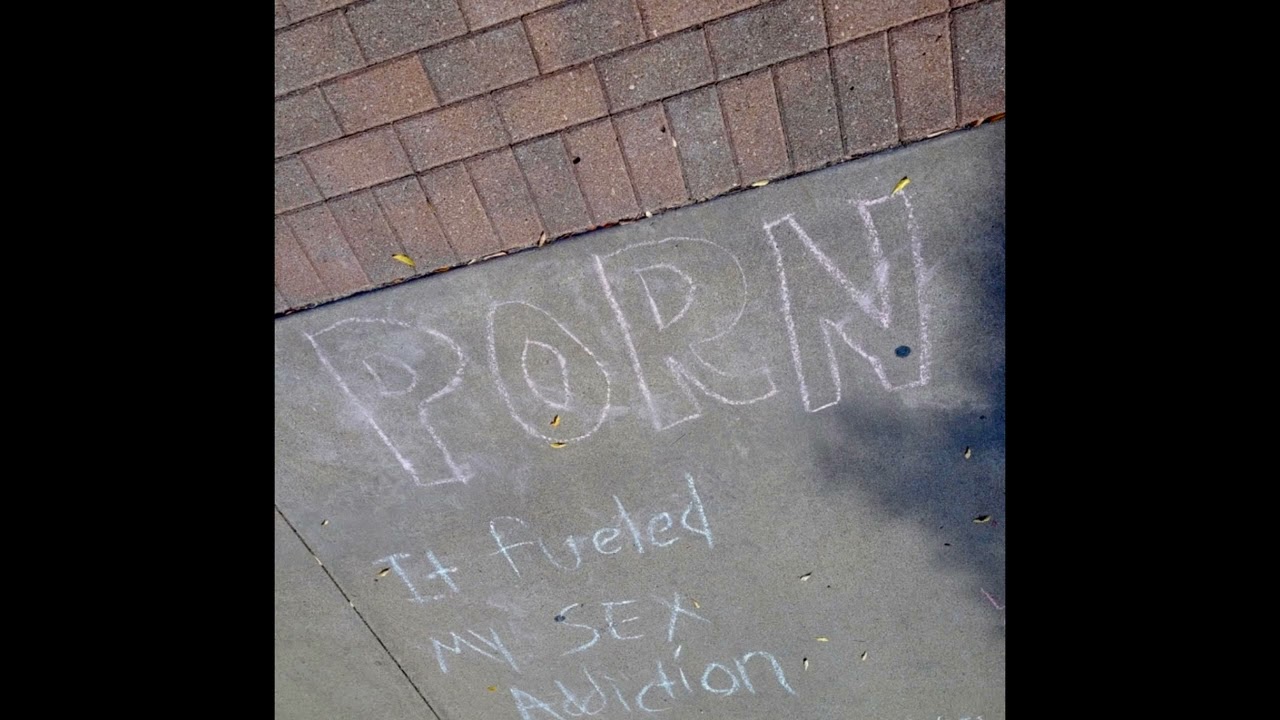 PORN
It fueled
MY SEX
Addiction